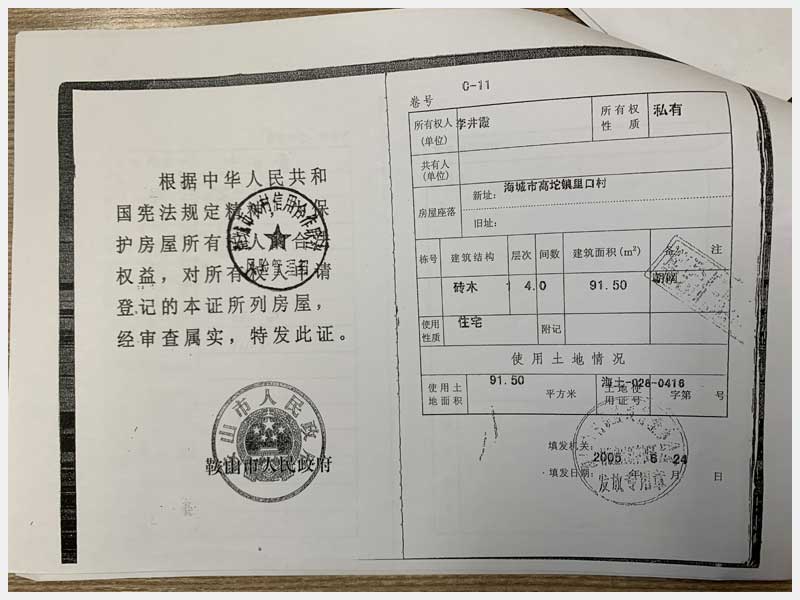 根据中华人民共和
国宪法规定 保
护房屋所有 人 合
权益，对所有权人申请
登记的本证所列房屋，
经审查属实，特发此证。
市农村信用合作
山市人民政
鞍山市人民政府
C-11
卷号
所有权人
(单位)
李井霞
所有权
性 质
私有
共有人
(单位)
房屋座落
新址:
海城市高坨镇里口村
旧址:
栋号 建筑结构 层次 间数 建筑面积(m²) 备 注
砖木 1 4.0 91.50
使用
性质
住宅
附记
使用土地情况
使用土
地面积
91.50
平方米
土地使
用证号
海土-028-0416
字第 号
填发机关:
填发日期:
2005 年 6 月 24 日
发放专用章